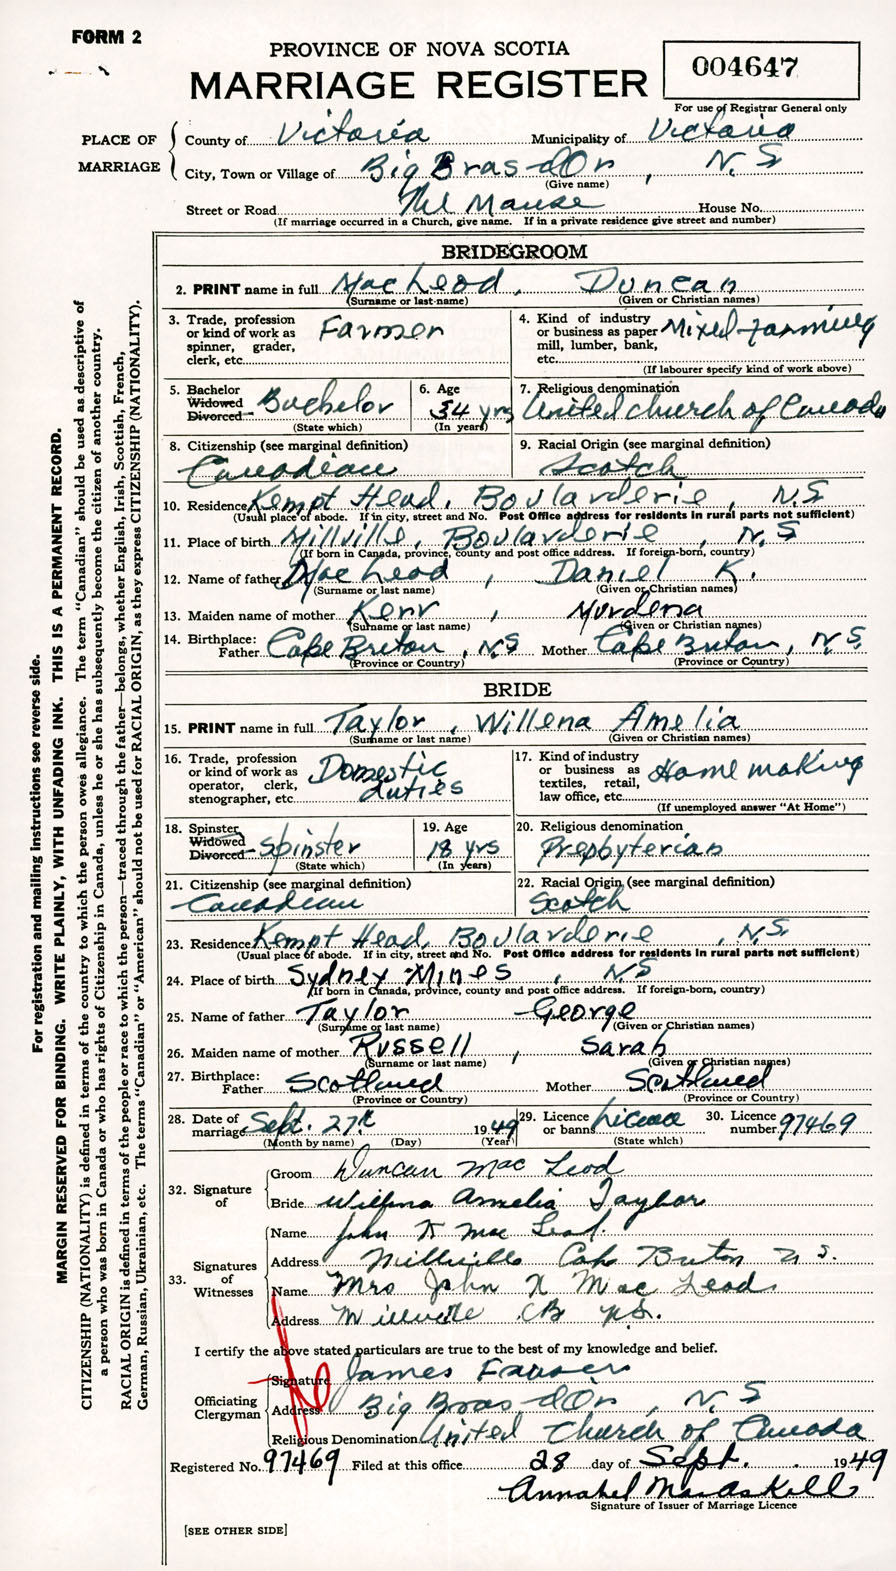 FORM 2
PROVINCE OF NOVA SCOTIA
MARRIAGE REGISTER
004647
For use of Registrar General only
PLACE OF MARRIAGE
County of Victoria Municipality of Victoria
City, Town or Village of Big Bras dOr, N.S
(Give name)
Street or Road The Manse House No.
(If marriage occurred in a Church, give name. If in a private residence give street and number)
BRIDEGROOM
2. PRINT name in full MacLeod, Duncan
(Surname or last name) (Given or Christian names)
3. Trade, profession or kind of work as spinner, grader, clerk, etc. Farmer
4. Kind of industry or business as paper mill, lumber, bank, etc. Mixed farming
(If labourer specify kind of work above)
5. Bachelor Widowed Divorced Bachelor
(State which)
6. Age 34 yrs
(In years)
7. Religious denomination United Church of Canada
8. Citizenship (see marginal definition) Canadian
9. Racial Origin (see marginal definition) Scotch
10. Residence Kempt Head, Boularderie, N.S
(Usual place of abode. If in city, street and No. Post Office address for residents in rural parts not sufficient)
11. Place of birth Millville, Boularderie, N.S
(If born in Canada, province, county and post office address. If foreign-born, country)
12. Name of father MacLeod, Daniel K.
(Surname or last name) (Given or Christian names)
13. Maiden name of mother Kerr, Murdena
(Surname or last name) (Given or Christian names)
14. Birthplace:
Father Cape Breton, N.S Mother Cape Breton, N.S.
(Province or Country) (Province or Country)
BRIDE
15. PRINT name in full Taylor, Willena Amelia
(Surname or last name) (Given or Christian names)
16. Trade, profession or kind of work as operator, clerk, stenographer, etc. Domestic duties
17. Kind of industry or business as textiles, retail, law office, etc. Home making
(If unemployed answer "At Home")
18. Spinster Widowed Divorced Spinster
(State which)
19. Age 18 yrs
(In years)
20. Religious denomination Presbyterian
21. Citizenship (see marginal definition) Canadian
22. Racial Origin (see marginal definition) Scotch
23. Residence Kempt Head, Boularderie, N.S.
(Usual place of abode. If in city, street and No. Post Office address for residents in rural parts not sufficient)
24. Place of birth Sydney Mines, N.S
(If born in Canada, province, county and post office address. If foreign-born, country)
25. Name of father Taylor George
(Surname or last name) (Given or Christian names)
26. Maiden name of mother Russell, Sarah
(Surname or last name) (Given or Christian names)
27. Birthplace:
Father Scotland Mother Scotland
(Province or Country) (Province or Country)
28. Date of marriage Sept. 27th 1949
(Month by name) (Day) (Year)
29. Licence or banns License
(State which)
30. Licence number 97469
32. Signature of
Groom Duncan MacLeod
Bride Willena Amelia Taylor
33. Signatures of Witnesses
Name John K MacLeod.
Address Millville Cape Breton N.S.
Name Mrs John K MacLeod
Address Millville CB N.S.
I certify the above stated particulars are true to the best of my knowledge and belief.
Officiating Clergyman
Signature James Fraser
Address Big Bras dOr, N.S
Religious Denomination United Church of Canada
Registered No. 97469 Filed at this office 28 day of Sept. 1949
Annabel MacAskill
Signature of Issuer of Marriage Licence
[SEE OTHER SIDE]
For registration and mailing instructions see reverse side.
MARGIN RESERVED FOR BINDING. WRITE PLAINLY, WITH UNFADING INK. THIS IS A PERMANENT RECORD.
CITIZENSHIP (NATIONALITY) is defined in terms of the country to which the person owes allegiance. The term "Canadian" should be used as descriptive of
a person who was born in Canada or who has rights of Citizenship in Canada, unless he or she has subsequently become the citizen of another country.
RACIAL ORIGIN is defined in terms of the people or race to which the person—traced through the father—belongs, whether English, Irish, Scottish, French,
German, Russian, Ukrainian, etc. The terms "Canadian" or "American" should not be used for RACIAL ORIGIN, as they express CITIZENSHIP (NATIONALITY).